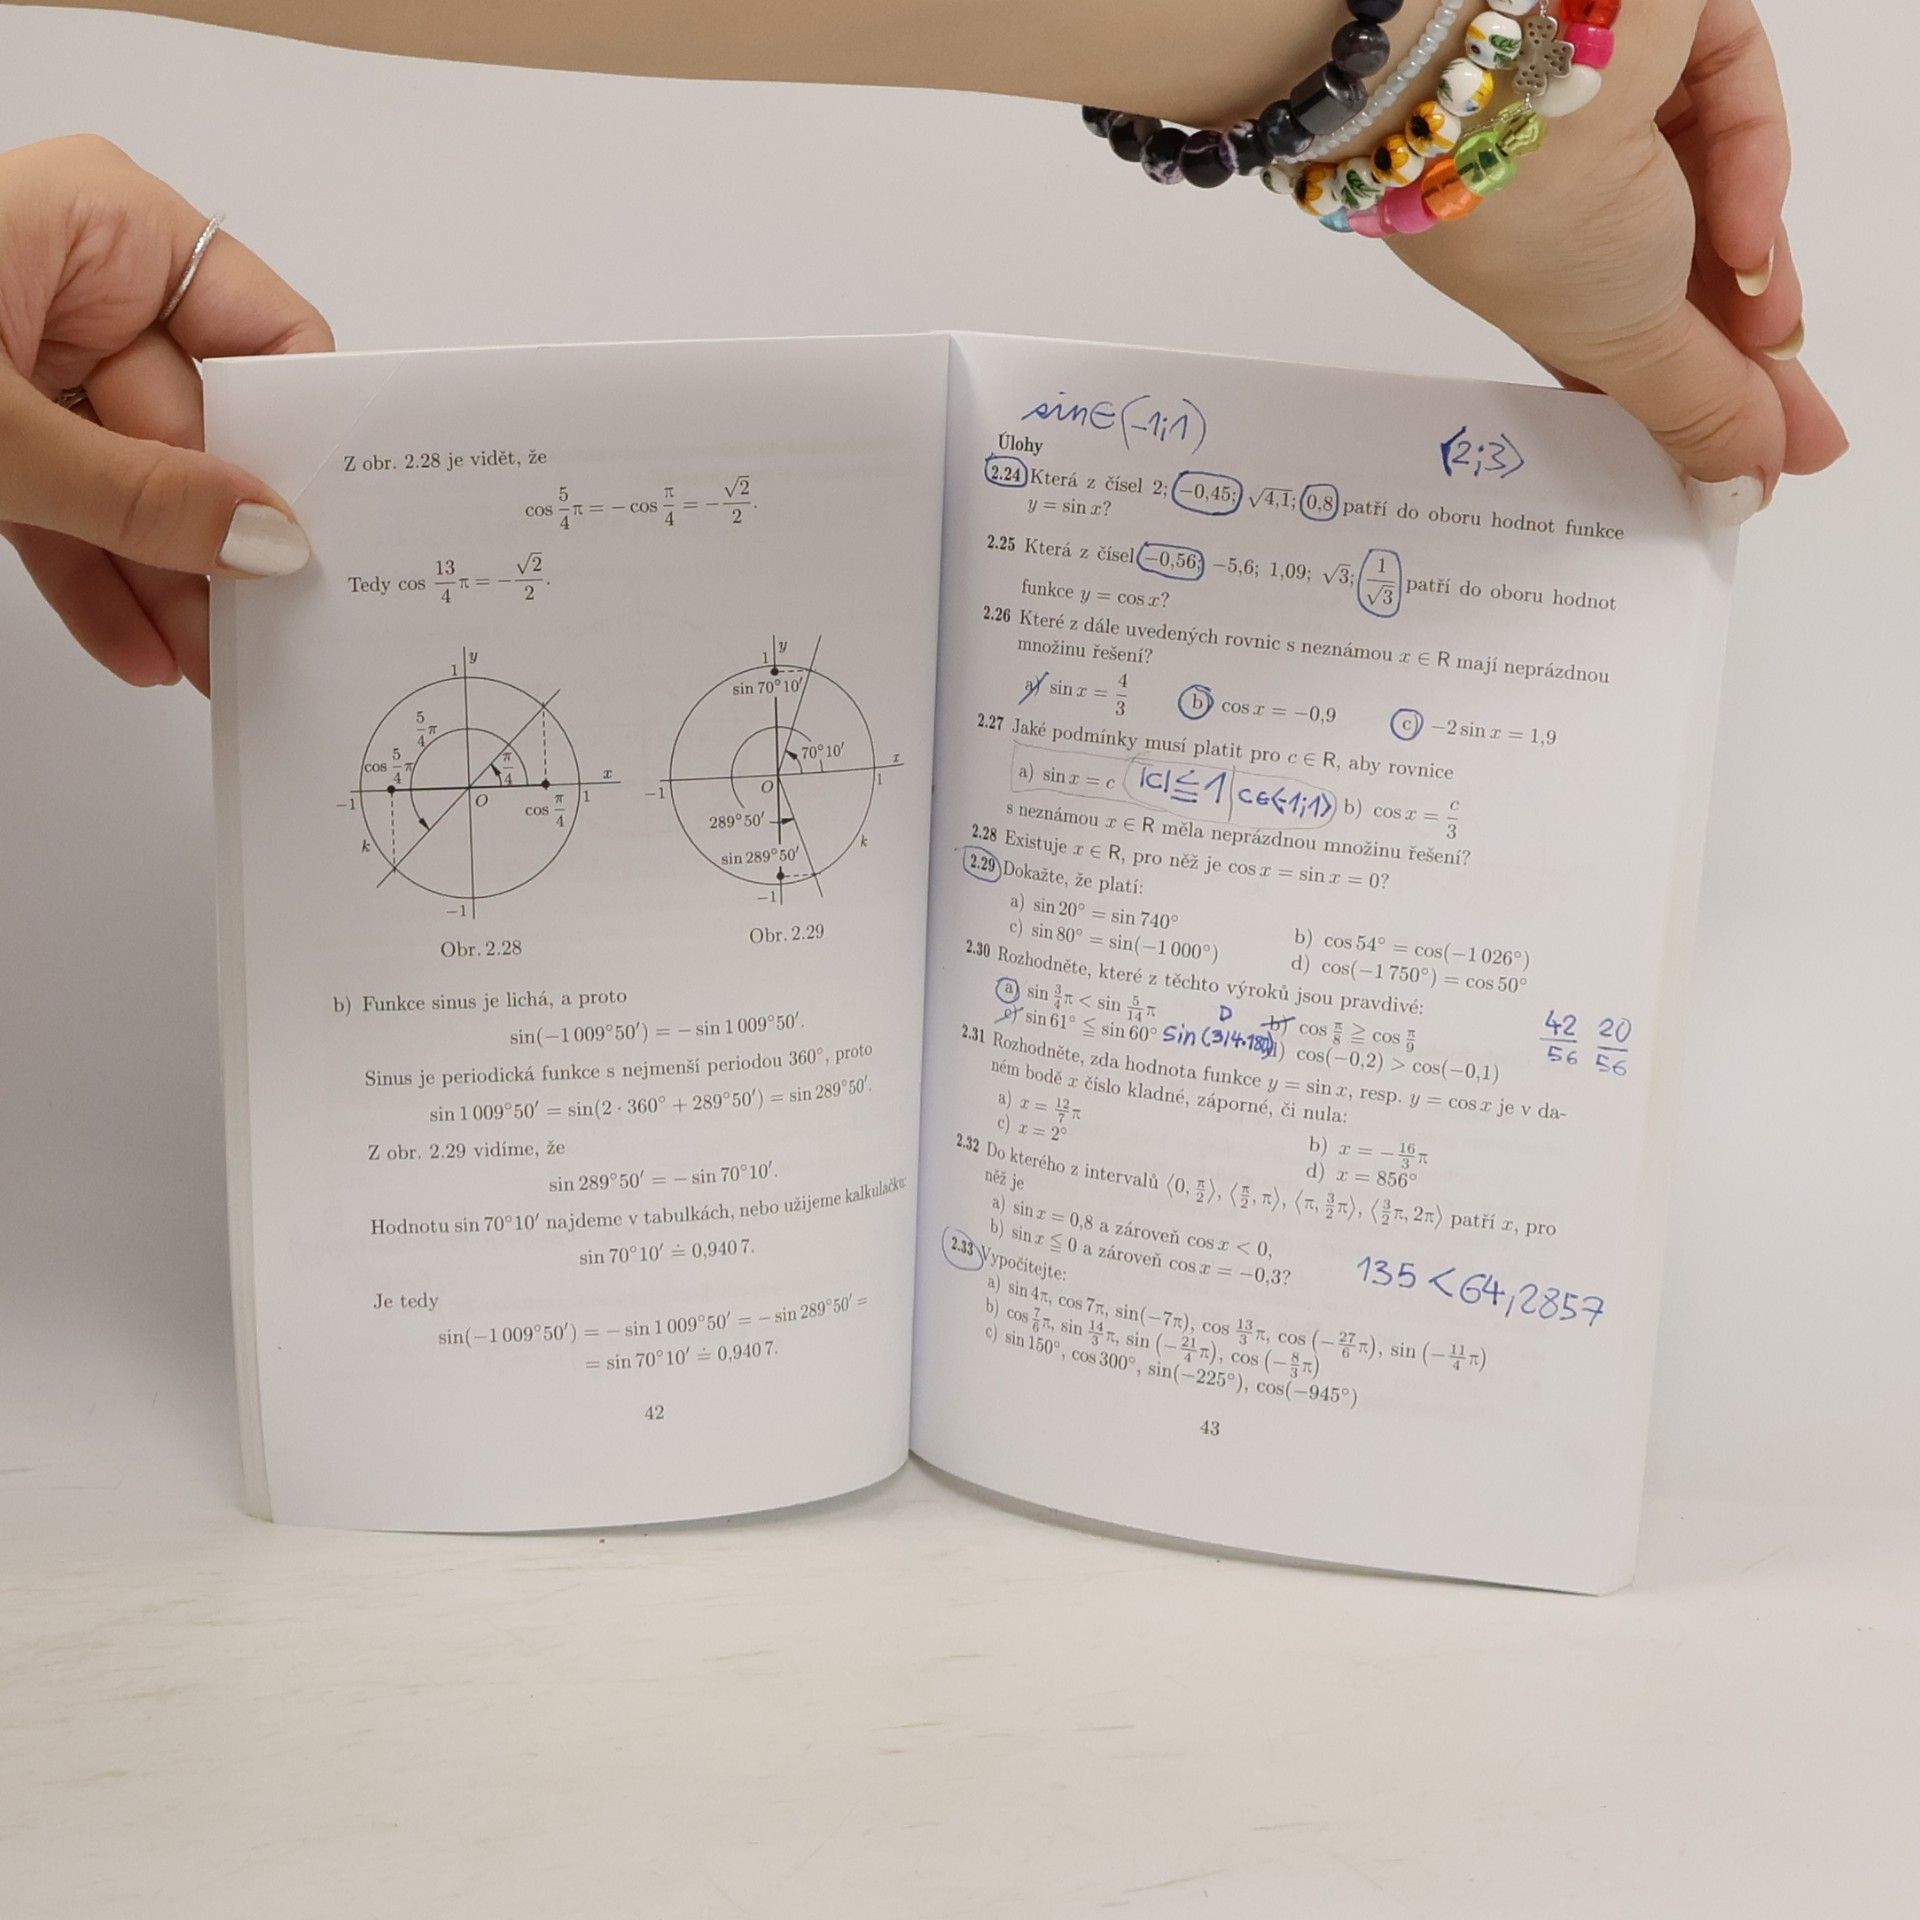 Z obr. 2.28 je vidět, že
cos 5/4 π = − cos π/4 = − √2/2.
Tedy cos 13/4 π = − √2/2.
y
1
5/4 π
cos 5/4 π
π/4
x
−1
O
cos π/4
1
k
−1
Obr. 2.28
y
1
sin 70°10′
70°10′
x
−1
O
1
289°50′
sin 289°50′
k
−1
Obr. 2.29
b) Funkce sinus je lichá, a proto
sin(−1 009°50′) = − sin 1 009°50′.
Sinus je periodická funkce s nejmenší periodou 360°, proto
sin 1 009°50′ = sin(2 · 360° + 289°50′) = sin 289°50′.
Z obr. 2.29 vidíme, že
sin 289°50′ = − sin 70°10′.
Hodnotu sin 70°10′ najdeme v tabulkách, nebo užijeme kalkulačku:
sin 70°10′ ≐ 0,940 7.
Je tedy
sin(−1 009°50′) = − sin 1 009°50′ = − sin 289°50′ =
= sin 70°10′ ≐ 0,940 7.
42
sin∈(−1;1)
⟨2;3⟩
Úlohy
2.24 Která z čísel 2; −0,45; √4,1; 0,8 patří do oboru hodnot funkce
y = sin x?
2.25 Která z čísel −0,56; −5,6; 1,09; √3; 1/√3 patří do oboru hodnot
funkce y = cos x?
2.26 Které z dále uvedených rovnic s neznámou x ∈ R mají neprázdnou
množinu řešení?
a) sin x = 4/3 b) cos x = −0,9 c) −2 sin x = 1,9
2.27 Jaké podmínky musí platit pro c ∈ R, aby rovnice
a) sin x = c |c| ≦ 1 | c∈⟨-1;1⟩ b) cos x = c/3
s neznámou x ∈ R měla neprázdnou množinu řešení?
2.28 Existuje x ∈ R, pro něž je cos x = sin x = 0?
2.29 Dokažte, že platí:
a) sin 20° = sin 740° b) cos 54° = cos(−1 026°)
c) sin 80° = sin(−1 000°) d) cos(−1 750°) = cos 50°
2.30 Rozhodněte, které z těchto výroků jsou pravdivé:
a) sin 3/4 π < sin 5/14 π D b) cos π/8 ≧ cos π/9
c) sin 61° ≦ sin 60° sin (3/4·180) d) cos(−0,2) > cos(−0,1)
42/56 20/56
2.31 Rozhodněte, zda hodnota funkce y = sin x, resp. y = cos x je v da-
ném bodě x číslo kladné, záporné, či nula:
a) x = 12/7 π b) x = −16/3 π
c) x = 2° d) x = 856°
2.32 Do kterého z intervalů ⟨0, π/2⟩, ⟨π/2, π⟩, ⟨π, 3/2 π⟩, ⟨3/2 π, 2π⟩ patří x, pro
něž je
a) sin x = 0,8 a zároveň cos x < 0,
b) sin x ≦ 0 a zároveň cos x = −0,3?
135 < 64,2857
2.33 Vypočítejte:
a) sin 4π, cos 7π, sin(−7π), cos 13/3 π, cos (−27/6 π), sin (−11/4 π)
b) cos 7/6 π, sin 14/3 π, sin (−21/4 π), cos (−8/3 π)
c) sin 150°, cos 300°, sin(−225°), cos(−945°)
43